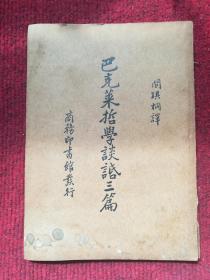 關琪桐譯
巴克萊哲學談話三篇
商務印書館發行